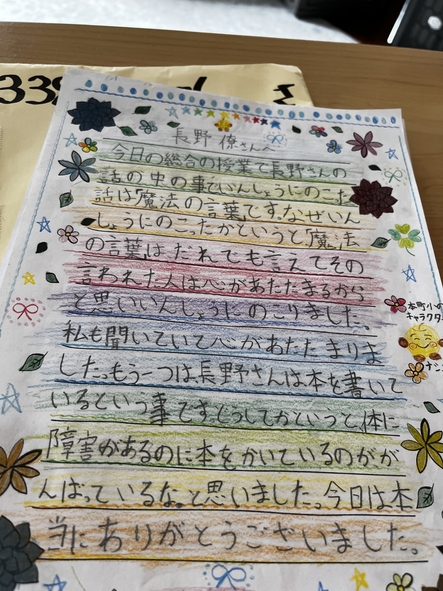 339
長野 僚さんへ
今日の総合の授業で長野さんの
話の中の事でいんしょうにのこった
話は「魔法の言葉」です。なぜいん
しょうにのこったかというと「魔法
の言葉」は、だれでも言えてその
言われた人は心があたたまるから
と思いいんしょうにのこりました。
私も聞いていて心があたたまりま
した。もう一つは、長野さんは本を書いて
いるという事です。どうしてかというと、体に
障害があるのに本をかいているのがが
んばっているな。と思いました。今日は本
当にありがとうございました。
本町小の
キャラクター